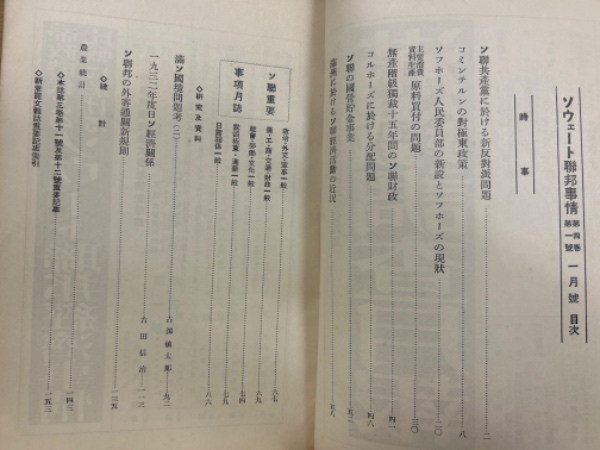 ソウェート聯邦事情 第四卷 第一號 一月號 目次
時事
ソ聯共產黨に於ける新反對派問題 二
コミンテルンの對極東政策 八
ソフホーズ人民委員部の新設とソフホーズの現狀 二〇
主要消費資料生產 原料買付の問題 三〇
無產階級獨裁十五年間のソ聯財政 四一
コルホーズに於ける分配問題 四六
ソ聯の國營貯金事業 五二
滿洲に於けるソ聯經濟活動の近況 五八
ソ聯重要事項月誌
政治・外交・軍事一般 六七
農・工・商・交通・財政一般 六九
產業・勞働・文化一般 七四
七九
日露關係一般 八六
◇研究及資料
滿ソ國境問題考(二) 古澤 太郎 九二
一九三二年度日ソ經濟關係 吉田信治 一一二
ソ聯邦の外客通關新規則 一三五
◇統計
農業統計 一四三
◇本誌第三卷第十一號及第十二號重要記事
◇新着露文雜誌重要記事索引 一五三